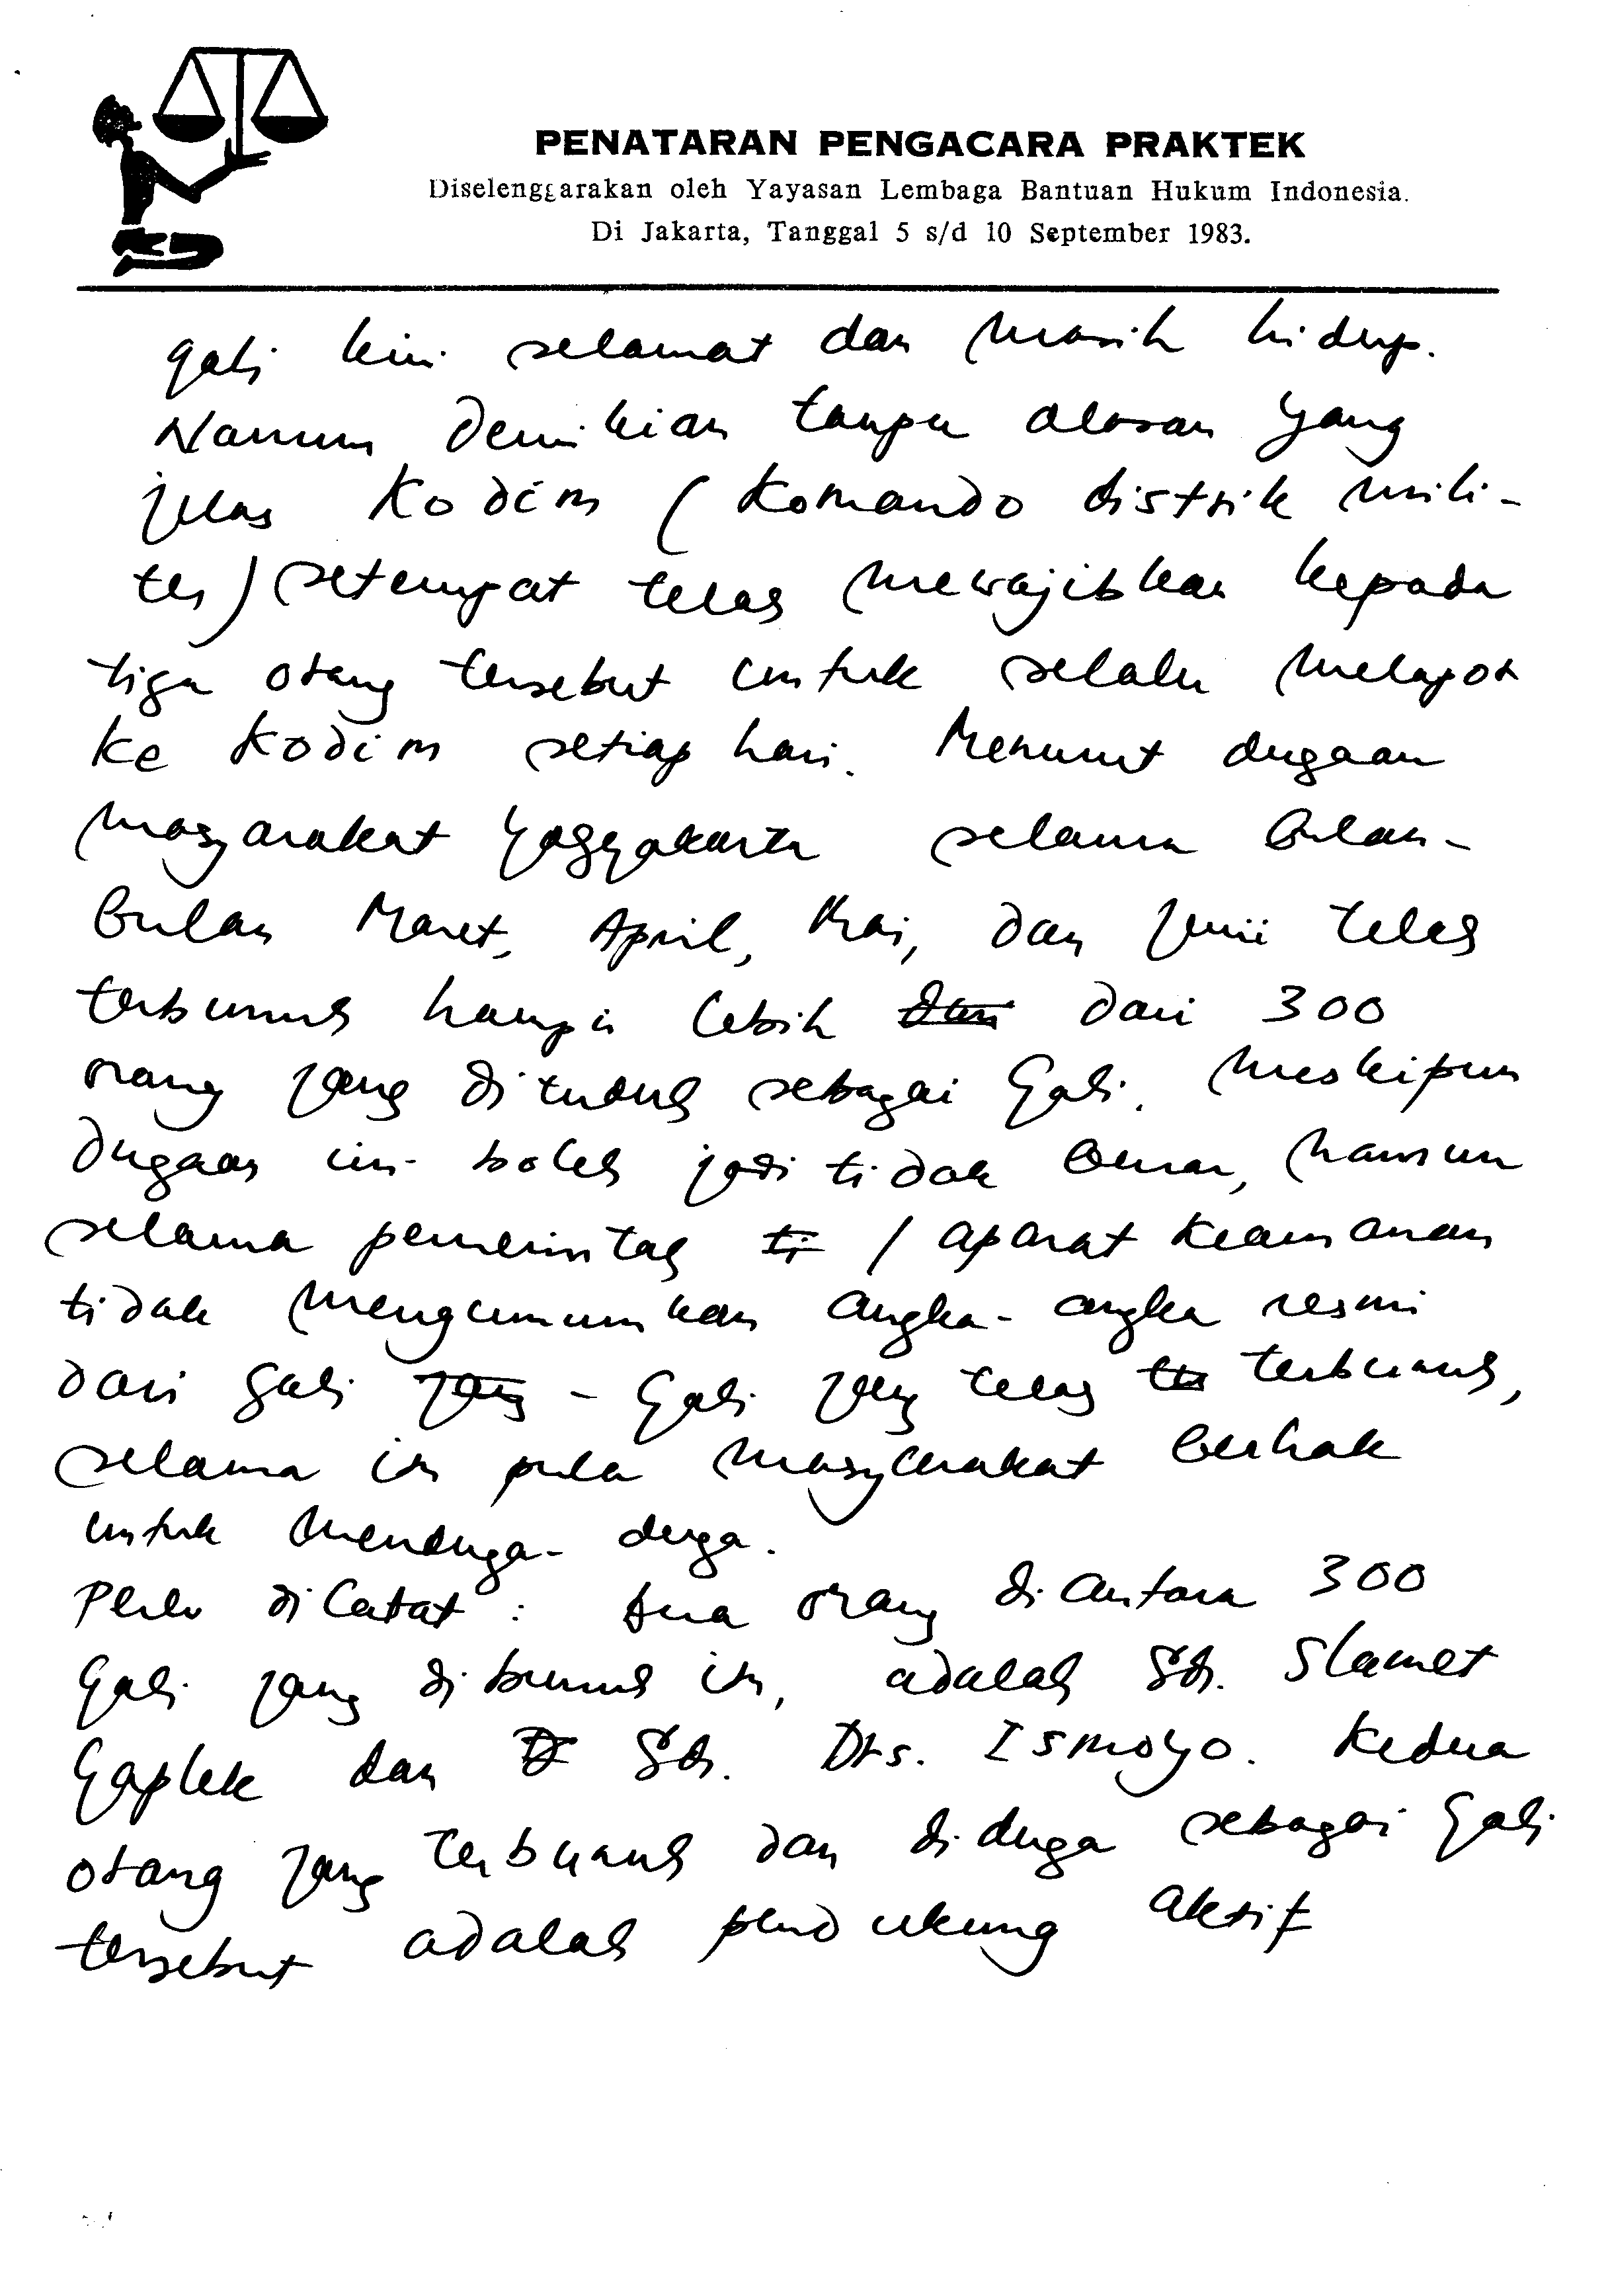 PENATARAN PENGACARA PRAKTEK
Diselenggarakan oleh Yayasan Lembaga Bantuan Hukum Indonesia.
Di Jakarta, Tanggal 5 s/d 10 September 1983.
gali kini selamat dan masih hidup.
Namun demikian tanpa alasan yang
jelas Kodim (Komando distrik mili-
ter) setempat telah mewajibkan kepada
tiga orang tersebut untuk selalu melapor
ke Kodim setiap hari. Menurut dugaan
masyarakat Yogyakarta selama bulan-
bulan Maret, April, Mei, dan Juni telah
terbunuh hampir lebih dari dari 300
orang yang dituduh sebagai Gali. Meskipun
dugaan ini boleh jadi tidak benar, namun
selama pemerintah ti / aparat keamanan
tidak mengumumkan angka-angka resmi
dari gali yang - Gali yang telah te terbunuh,
selama itu pula masyarakat berhak
untuk menduga-duga.
Perlu dicatat : dua orang diantara 300
Gali yang dibunuh itu, adalah Sdr. Slamet
Gaplek dan D Sdr. Drs. Ismoyo. Kedua
orang yang terbunuh dan diduga sebagai Gali
tersebut adalah pendukung aktif